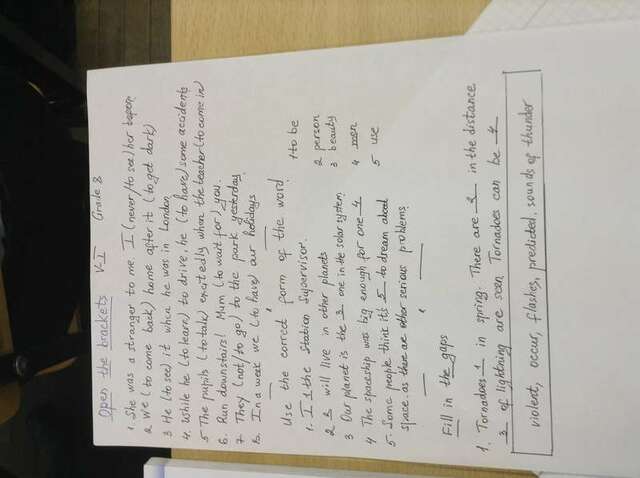 Open the brackets V-I Grade 8
1. She was a stranger to me. I (never/to see) her before
2 We (to come back) home after it (to get dark)
3 He (to see) it when he was in London
4. While he (to learn) to drive, he (to have) some accidents
5 The pupils (to talk) excitedly when the teacher (to come in)
6. Run downstairs! Mum (to wait for) you.
7. They (not/to go) to the park yesterday
8. In a week we (to have) our holidays
Use the correct form of the word
1. I 1 the Station Supervisor. 1 to be
2 2 will live in other planets 2 person
3 Our planet is the 3 one in the solar system 3 beauty
4 The spaceship was big enough for one 4 4 men
5. Some people think it's 5 to dream about 5 use
space. as there are other serious problems
Fill in the gaps
1. Tornadoes 1 in spring. There are 2 in the distance.
3 of lightning are seen. Tornadoes can be 4
violent, occur, flashes, predicted, sounds of thunder